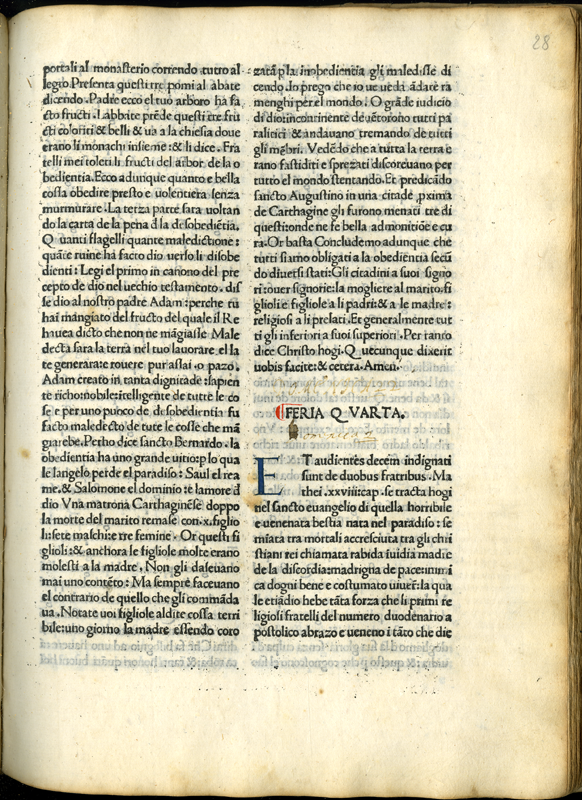 28
portali al monasterio correndo tutto al
legro. Presenta questi tre pomi al abate
dicendo. Padre ecco el tuo arboro ha fa
cto fructi. Labbate prēde questi tre fru
cti coloriti & belli & ua a la chiesa doue
erano li monachi insieme: & li dice. Fra
telli mei toleti li fructi del arbor de la o
bedientia. Ecco adunque quanto e bella
cossa obedire presto e uolentiera senza
murmurare. La terza parte sara uoltan
do la carta de la pena d la disobediētia.
Q uanti flagelli quante maledictione:
quāte ruine ha facto dio uerso li disobe
dienti: Legi el primo in canono del pre
cepto de dio nel uechio testamento. dis
se dio al nostro padre Adam: perche tu
hai mangiato del fructo del quale il Re
hauea dicto che non ne māgiasse Male
decta sara la terra nel tuo lauorare el la
te generara: e rouere pur assai .o pazo.
Adam creato in tanta dignitade: sapien
te richo nobile: itelligente de tutte le co
se e per uno puoco de disobedientia fu
facto maledecto de tute le cosse che mā
giarebe. Perho dice sancto Bernardo. la
obedientia ha uno grande uitio: p lo qua
le langelo perde el paradiso: Saul el rea
me. & Salomone el dominio: te lamore d
dio Vna matrona Carthaginēse doppo
la morte del marito remase con .x. figlio
li: sete maschi e tre femine. Or questi fi
glioli: & anchora le figliole molte erano
molesti a la madre. Non gli daseuano
mai uno contēto: Ma sempre faceuano
el contrario de quello che gli commāda
ua. Notate uoi figliole aldite cossa terri
bile: uno giorno la madre essendo coro
zatā p la inobedientia gli maledisse di
cendo. Io prego che io ue ueda ādare ra
menghi per el mondo. O grāde iudicio
di dio: incontinente dēētorono tutti pa
ralitici & andauano tremando de tutti
gli mēbri. Vedēdo che a tutta la terra e
rano fastiditi e sprezati discoreuano per
tutto el mondo stentando. Et predicādo
sancto Augustino in una citade pxima
de Carthagine gli furono menati tre di
questi: onde ne fe bella admonitiōe e cu
ra. Or basta Concludemo adunque che
tutti siamo obligati a la obediētia secū
do diuersi stati: Gli citadini a suoi signo
ri: ouer signorie: la mogliere al marito. fi
glioli e figliole a li padri: & a le madre:
religiosi a li prelati. Et generalmente tut
ti gli inferiori a suoi superiori. Per tanto
dice Christo hogi. Q uecunque dixerit
uobis facite: & cetera. Amen.
FERIA Q VARTA.
ET audientes decem indignati
sunt de duobus fratribus. Ma
thei .xxviii: cap. se tracta hogi
nel sancto euangelio di quella horribile
e uenenata bestia nata nel paradiso: se
miata tra mortali accresciuta tra gli chri
stiani rei chiamata rabida iuidia madre
de la discordia: madrigna de pace: inimi
ca dogni bene e costumato uiuer: la qua
le etiādio hebe tāta forza che li primi re
ligiosi fratelli del numero duodenario a
postolico abrazo e ueneno i tāto che die